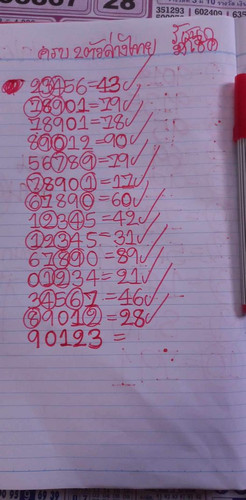 28
351293 | 602409 | 635
ครบ 2ตัวล่างไทย
23456=43
78901=79
78901=78
89012=90
56789=79
78901=17
67890=60
12345=42
12345=31
67890=89
01234=21
34567=46
89012=28
90123=